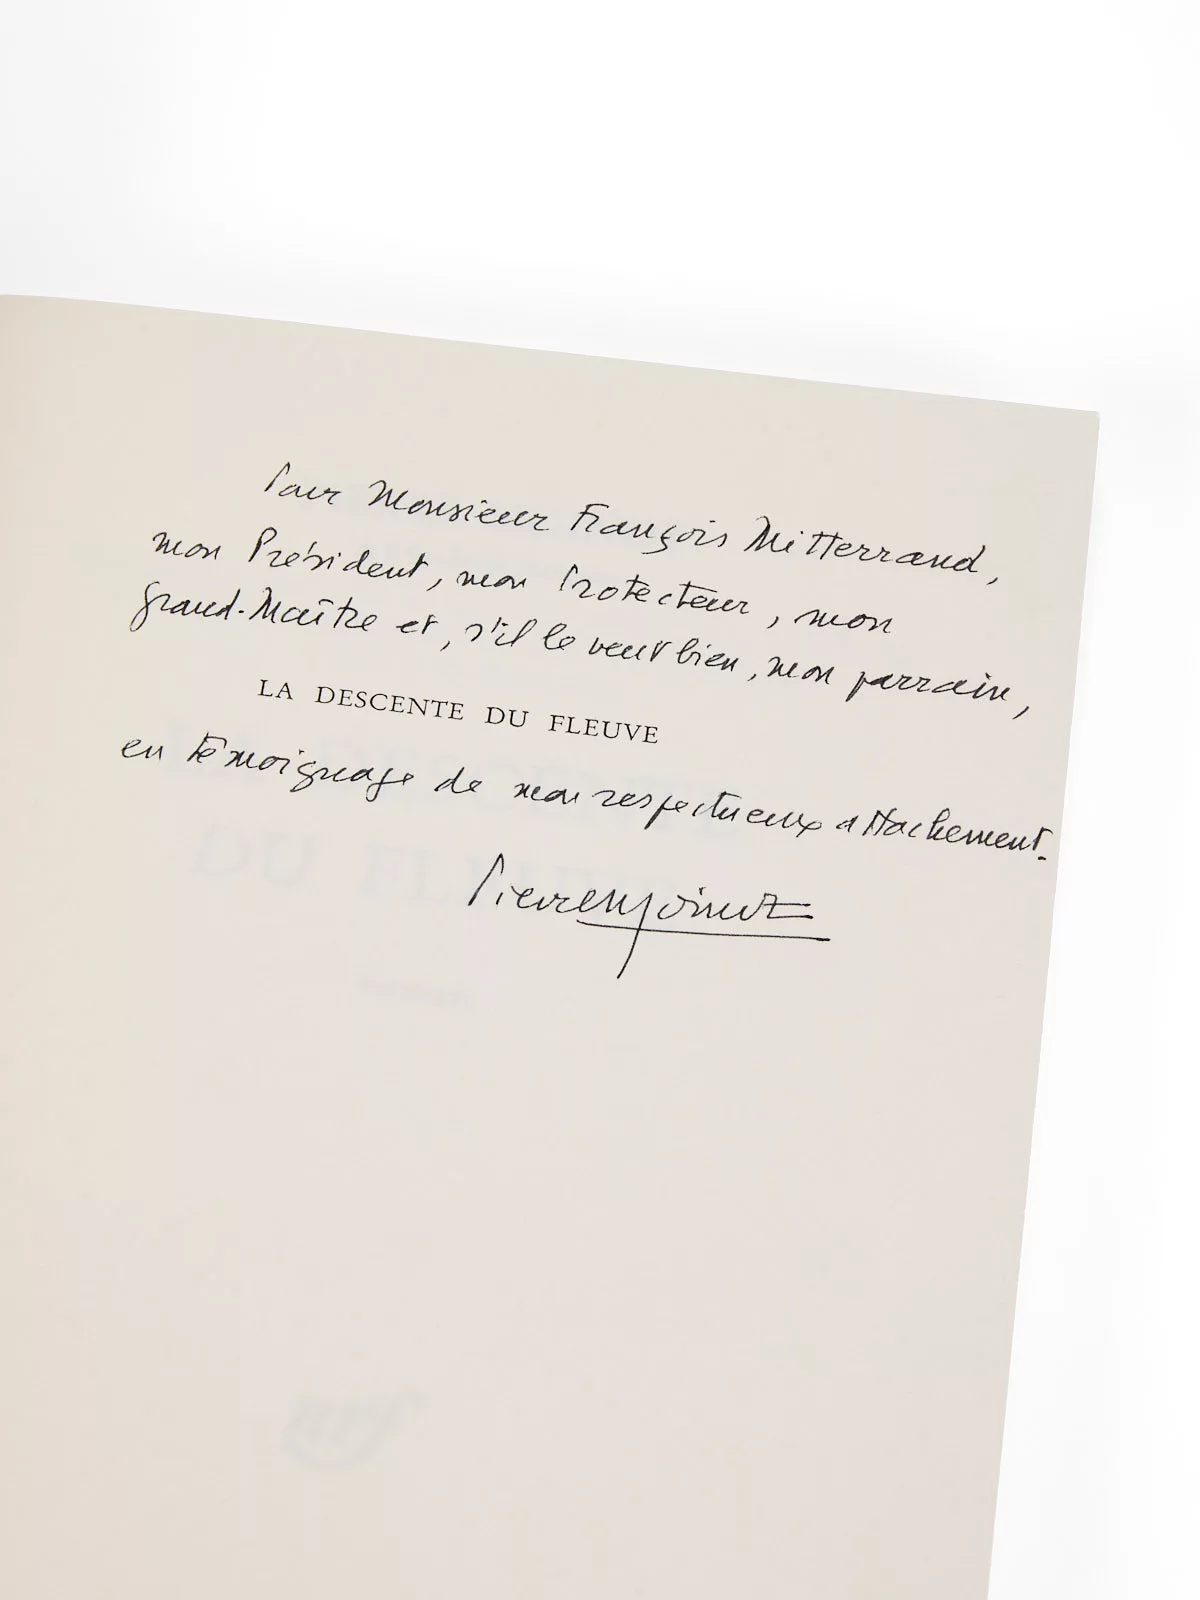 Pour Monsieur François Mitterrand,
mon Président, mon Protecteur, mon
grand-Maître et, s'il le veut bien, mon parrain,
LA DESCENTE DU FLEUVE
en témoignage de mon respectueux attachement.
Pierre Moinot
DU FLEUVE
roman
nrf